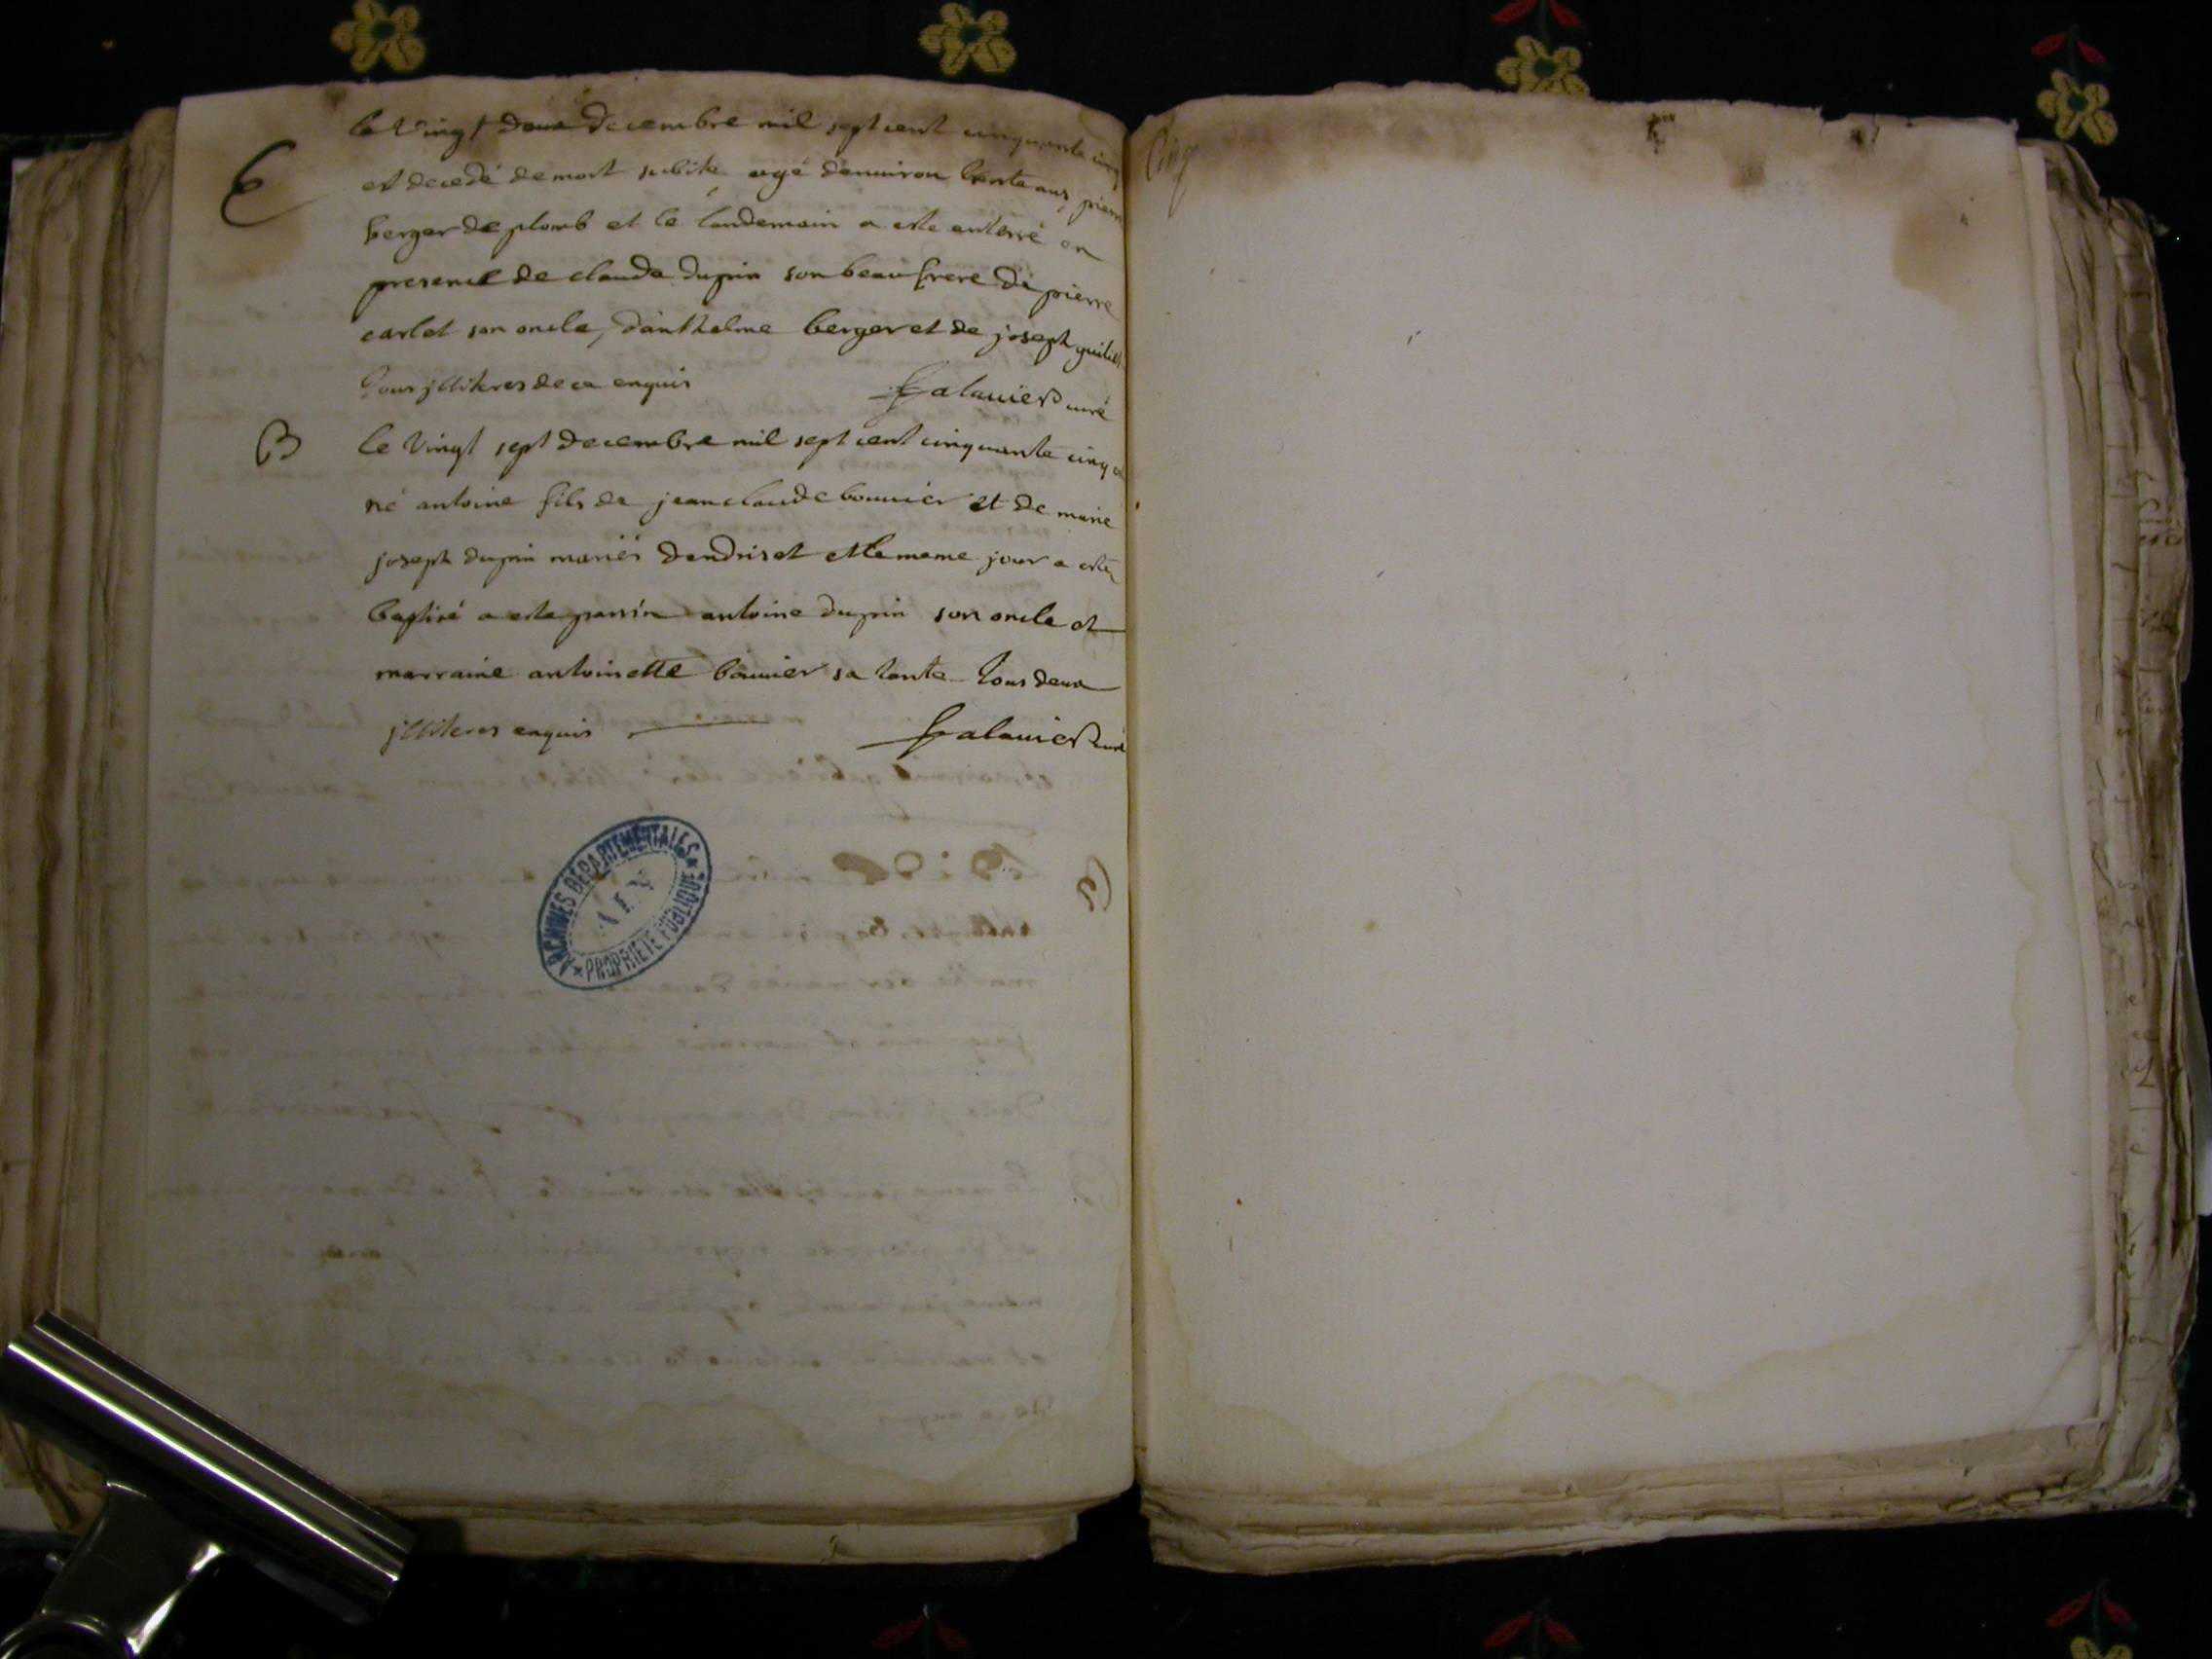 E
le Vingt deux decembre mil sept cent cinquante cinq
est decedé de mort subite agé denuiron trente ans pierre
berger de plomb et le landemain a este enterré en
presence de claude dupin son beau frere de pierre
carlet son oncle, danthelme berger et de joseph
tous jlliteres de ce enquis
falauier curé
B
le Vingt sept decembre mil sept cent cinquante cinq
né antoine fils de jean claude bouuier et de marie
joseph dupin mariés dandriset et le meme jour a esté
baptisé a este parrin antoine dupin son oncle et
marraine antoinette bouuier sa tante tous deux
jlliteres enquis
falauier curé
ARCHIVES DÉPARTEMENTALES
AIN
PROPRIÉTÉ PUBLIQUE
Cinq